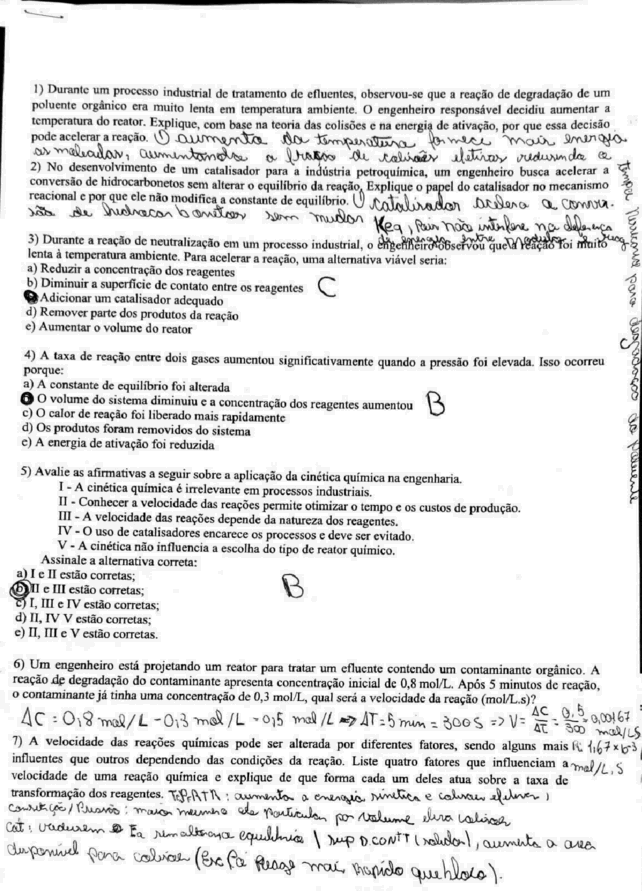 1) Durante um processo industrial de tratamento de efluentes, observou-se que a reação de degradação de um
poluente orgânico era muito lenta em temperatura ambiente. O engenheiro responsável decidiu aumentar a
temperatura do reator. Explique, com base na teoria das colisões e na energia de ativação, por que essa decisão
pode acelerar a reação. O aumento da temperatura fornece mais energia
as moleculas, aumentando a de colisões efetivas reduzindo o
2) No desenvolvimento de um catalisador para a indústria petroquímica, um engenheiro busca acelerar a
conversão de hidrocarbonetos sem alterar o equilíbrio da reação, Explique o papel do catalisador no mecanismo
reacional e por que ele não modifica a constante de equilíbrio. O catalisador acelera a conver-
são de hidrocarbonetos sem mudar Keq, pois não interfere na diferença
de energia entre produtos e reag
tempo necessario para degradação do poluente
3) Durante a reação de neutralização em um processo industrial, o engenheiro observou que a reação foi muito
lenta à temperatura ambiente. Para acelerar a reação, uma alternativa viável seria:
a) Reduzir a concentração dos reagentes
b) Diminuir a superfície de contato entre os reagentes C
c) Adicionar um catalisador adequado
d) Remover parte dos produtos da reação
e) Aumentar o volume do reator
4) A taxa de reação entre dois gases aumentou significativamente quando a pressão foi elevada. Isso ocorreu
porque:
a) A constante de equilíbrio foi alterada
b) O volume do sistema diminuiu e a concentração dos reagentes aumentou B
c) O calor de reação foi liberado mais rapidamente
d) Os produtos foram removidos do sistema
e) A energia de ativação foi reduzida
5) Avalie as afirmativas a seguir sobre a aplicação da cinética química na engenharia.
I - A cinética química é irrelevante em processos industriais.
II - Conhecer a velocidade das reações permite otimizar o tempo e os custos de produção.
III - A velocidade das reações depende da natureza dos reagentes.
IV - O uso de catalisadores encarece os processos e deve ser evitado.
V - A cinética não influencia a escolha do tipo de reator químico.
Assinale a alternativa correta:
a) I e II estão corretas;
b) II e III estão corretas; B
c) I, III e IV estão corretas;
d) II, IV V estão corretas;
e) II, III e V estão corretas.
6) Um engenheiro está projetando um reator para tratar um efluente contendo um contaminante orgânico. A
reação de degradação do contaminante apresenta concentração inicial de 0,8 mol/L. Após 5 minutos de reação,
o contaminante já tinha uma concentração de 0,3 mol/L, qual será a velocidade da reação (mol/L.s)?
ΔC = 0,8 mol/L - 0,3 mol/L = 0,5 mol/L => ΔT = 5 min = 300 S => V = ΔC/ΔT = 0,5/300 = 0,00167 mol/LS
7) A velocidade das reações químicas pode ser alterada por diferentes fatores, sendo alguns mais R: 1,67 x 10-3
influentes que outros dependendo das condições da reação. Liste quatro fatores que influenciam a mol/L,S
velocidade de uma reação química e explique de que forma cada um deles atua sobre a taxa de
transformação dos reagentes. : aumenta a energia cinetica e colisoes efetivas ;
: maior numero de Particulas por volume eleva colisoes
cat: reduzem Ea sem alterar o equilibrio \ sup D.CONTT (solidos), aumenta a area
disponivel para colisoes (Ex: Pó Reage mais rapido que bloco).